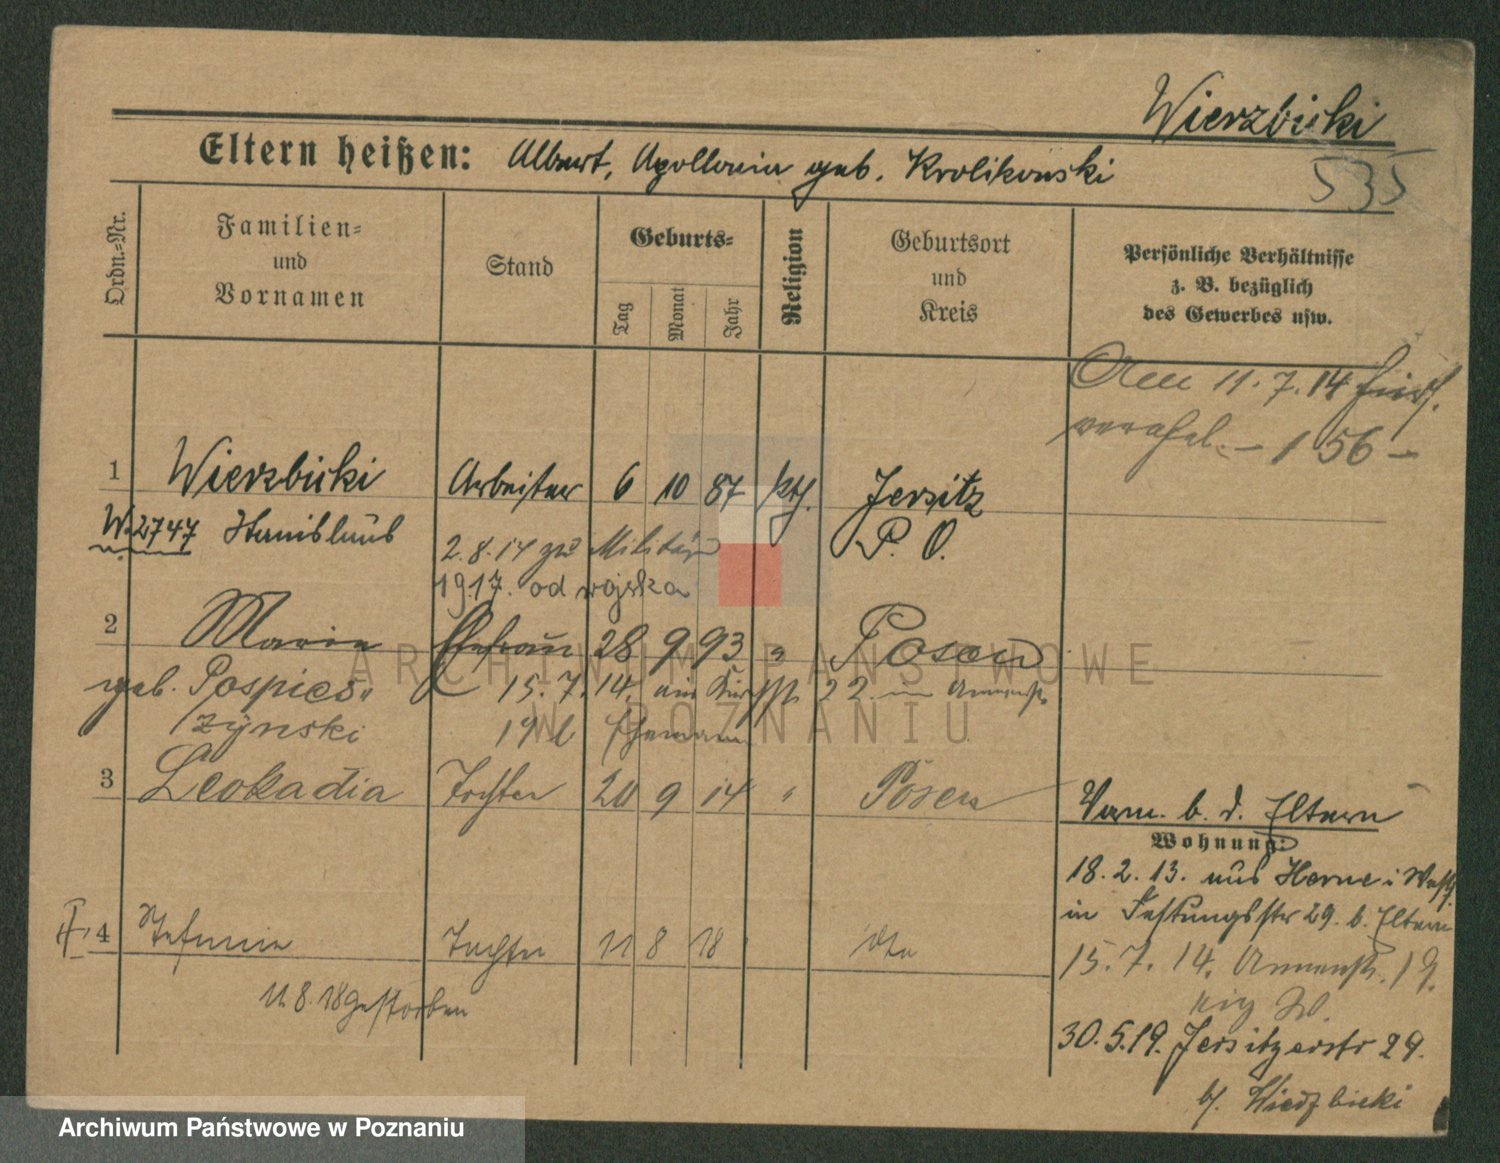 Wierzbicki
535
Eltern heißen: Albert, Apollonia geb. Krolikowski
Ordn.-Nr.
Familien- und Vornamen
Stand
Geburts-
Tag
Monat
Jahr
Religion
Geburtsort und Kreis
Persönliche Verhältnisse z. B. bezüglich des Gewerbes usw.
11.7.14
verehel. – 156 –
1 Wierzbicki Arbeiter 6 10 87 kth. Jersitz
W. 2747 Stanislaus P. O.
2.8.14 zu Militär
1917. od wojska
2 Marie Ehefrau 28 9 93 " Posen
geb. Pospies- 15.7.14. 22.
zynski Ehemann
3 Leokadia Tochter 20 9 14 " Posen
Verm. b. d. Eltern
Wohnung:
18.2.13. aus Herne i Westf.
in Festungsstr 29. b. Eltern
II, 4 Stefanie Tochter 11 8 18 dto
15.7.14. Annenstr. 19.
11.8.18 gestorben
30.5.19. Jersitzerstr 29.
b/. Wierzbicki
ARCHIWUM PAŃSTWOWE
W POZNANIU
Archiwum Państwowe w Poznaniu